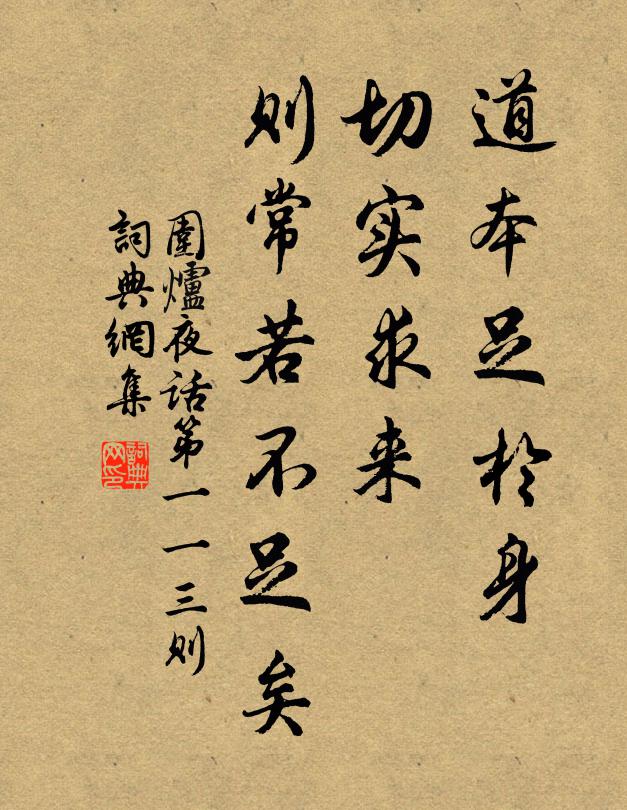 道本足於身
切实求来
则常若不足矣
圍爐夜话第一一三则
詞典網集
詞典网印